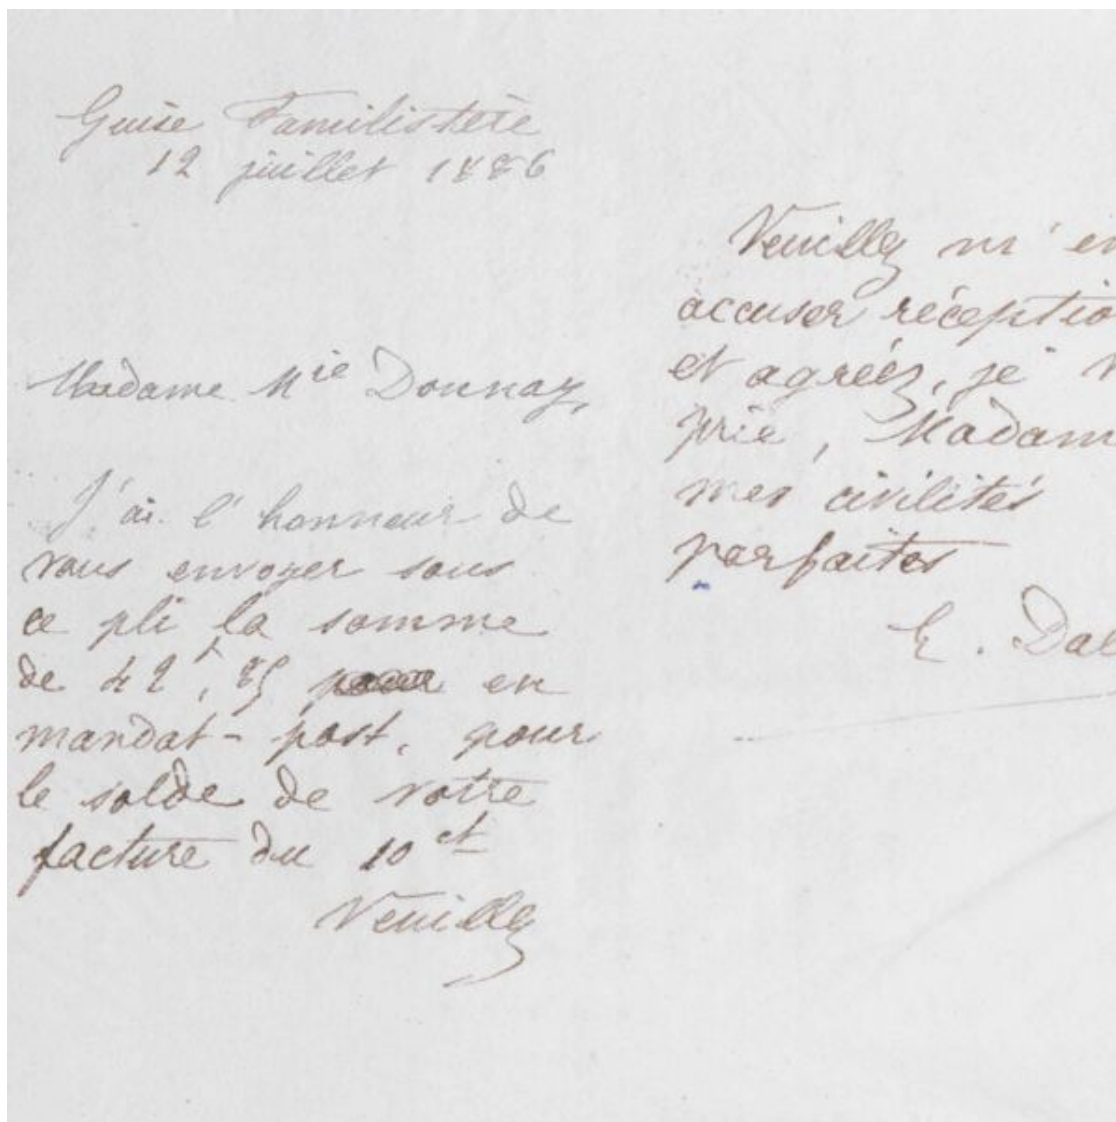 Guise Familistère
12 juillet 1886
Madame Mie Donnay,
J'ai l'honneur de
vous envoyer sous
ce pli la somme
de 42f,85 en
mandat-post. pour
le solde de votre
facture du 10 ct
Veuillez
Veuillez m'en
accuser réceptio
et agréez, je v
prie, Madam
mes civilités
parfaites
E. Dal